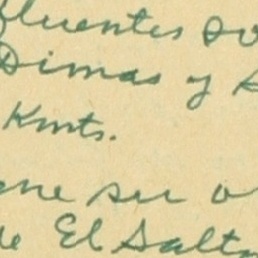 fluentes so
Dimas y S
Kmts.
ne su o
de El Salto